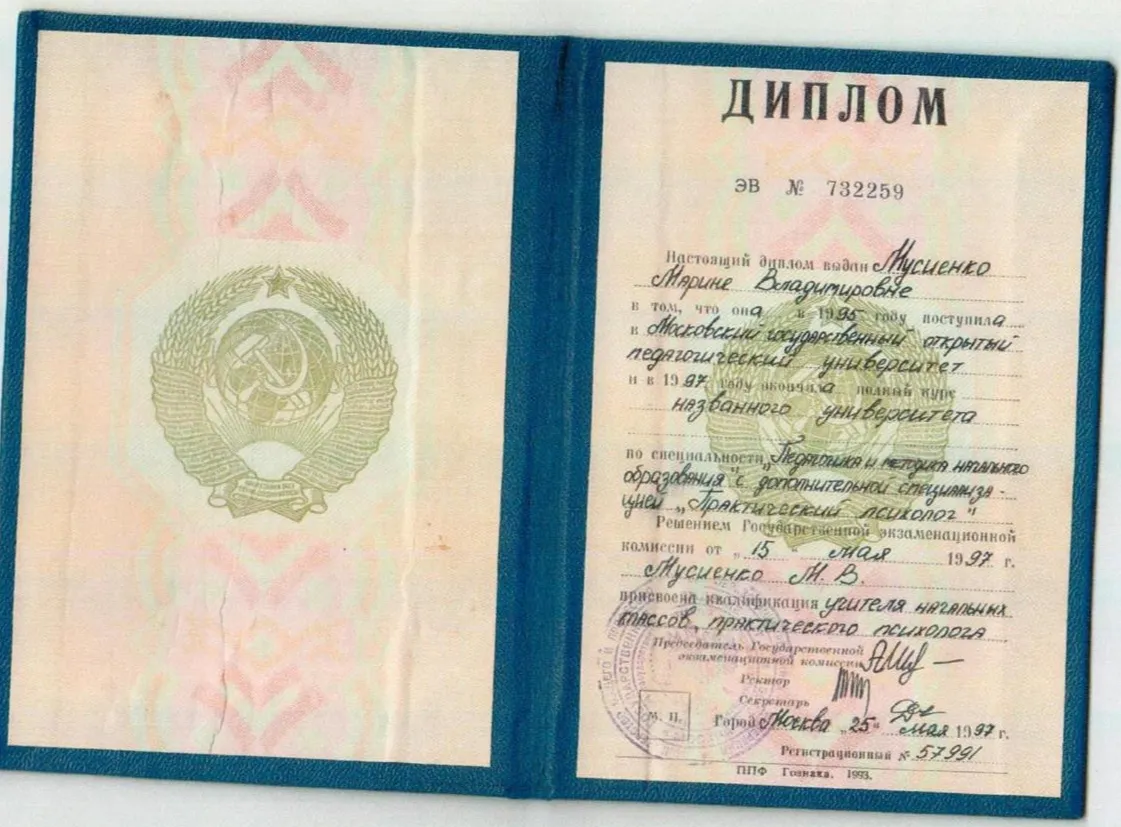 ДИПЛОМ
ЭВ № 732259
Настоящий диплом выдан Мусиенко
Марине Владимировне
в том, что она в 1995 году поступила
в Московский государственный открытый
педагогический университет
и в 1997 году окончила полный курс
названного университета
по специальности „Педагогика и методика начального
образования" с дополнительной специализа-
цией „Практический психолог"
Решением Государственной экзаменационной
комиссии от „15 мая 1997 г.
Мусиенко М. В.
присвоена квалификация учителя начальных
классов, практического психолога
Председатель Государственной
экзаменационной комиссии
Ректор
Секретарь
М. П.
Город Москва „25" мая 1997 г.
Регистрационный № 57991
ППФ Гознака. 1993.